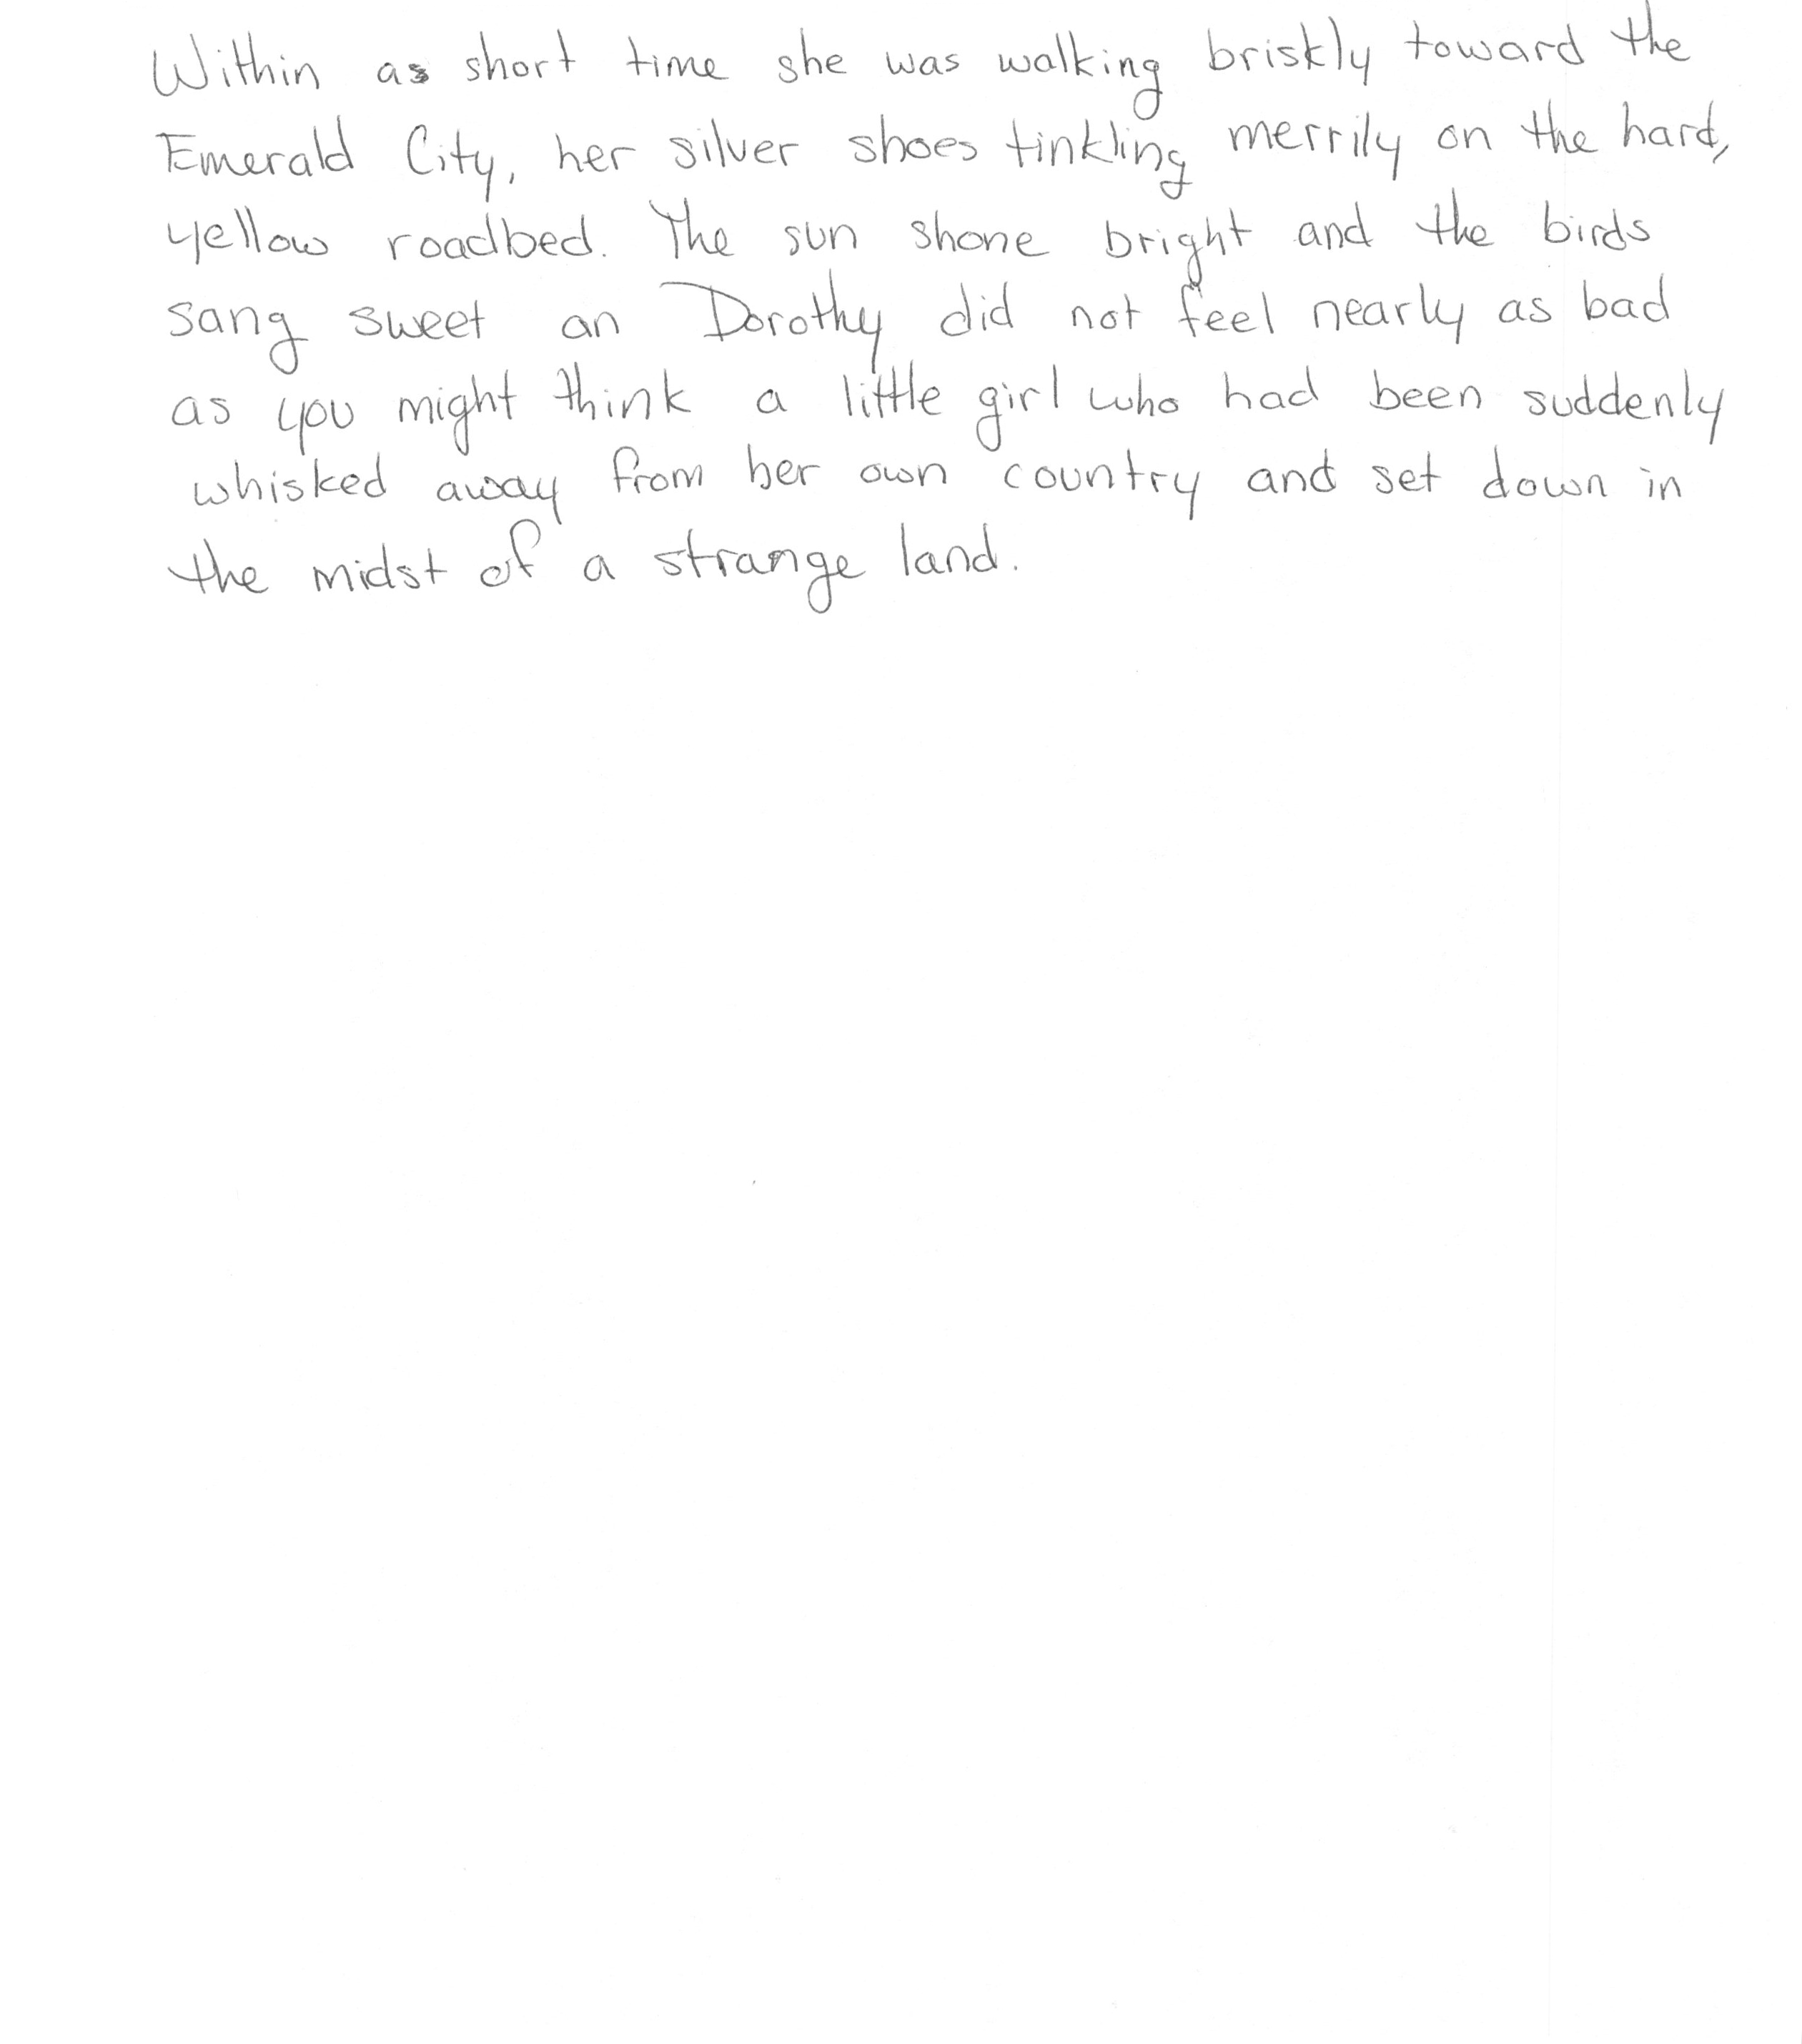 Within as short time she was walking briskly toward the
Emerald City, her silver shoes tinkling merrily on the hard,
yellow roadbed. The sun shone bright and the birds
sang sweet an Dorothy did not feel nearly as bad
as you might think a little girl who had been suddenly
whisked away from her own country and set down in
the midst of a strange land.